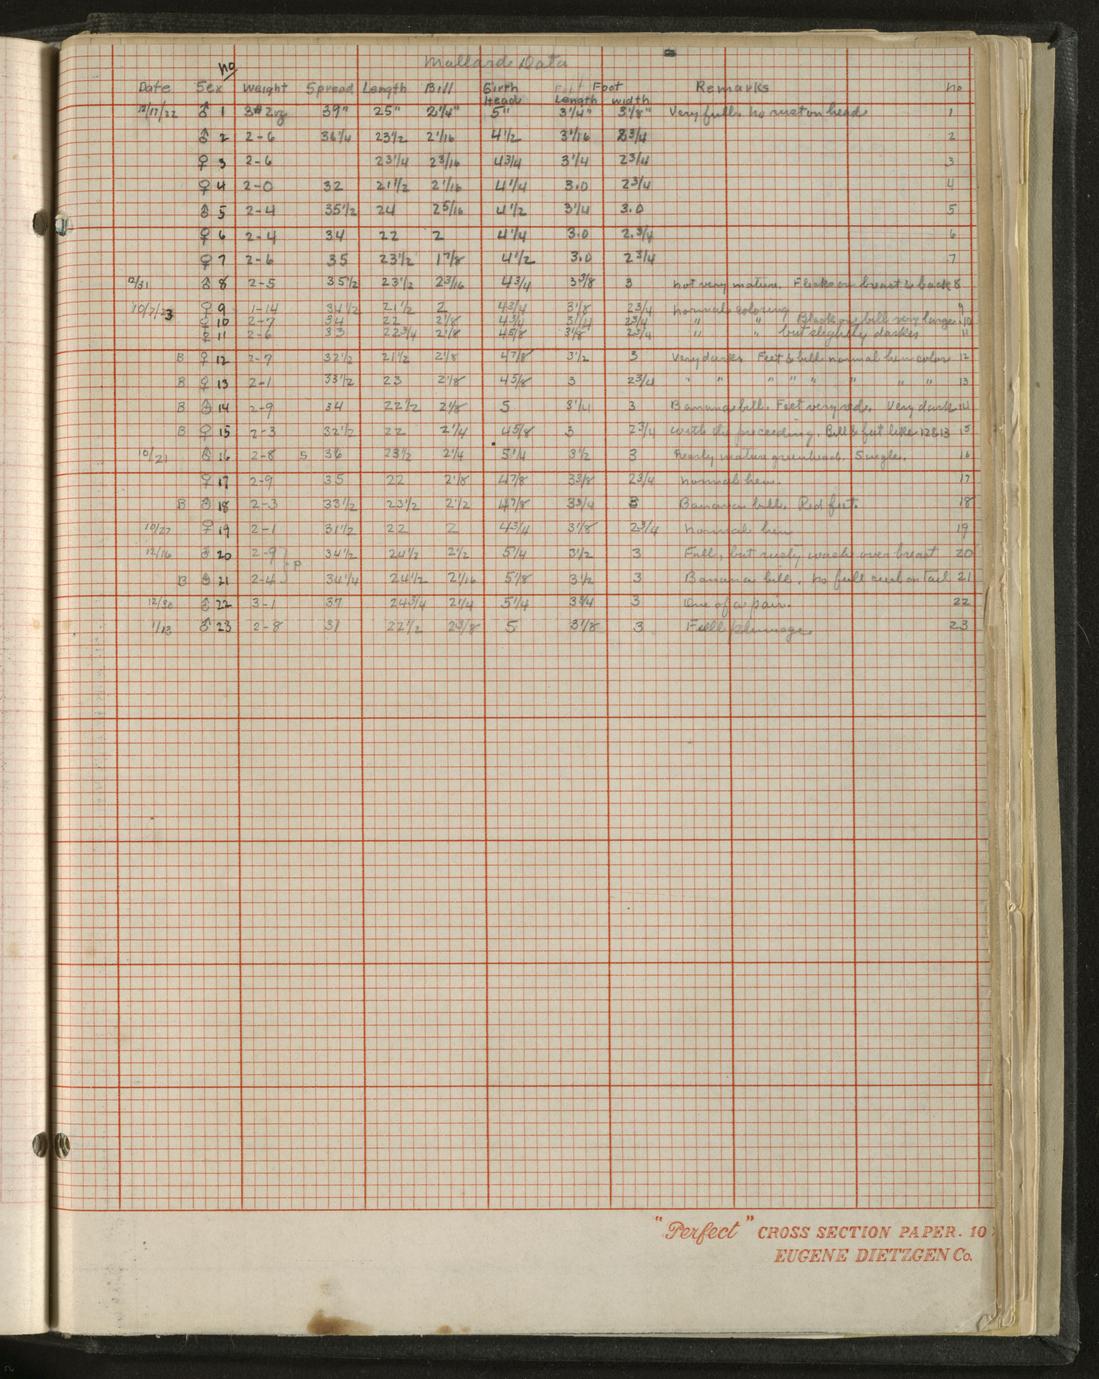 Mallard Data
Date Sex no Weight Spread Length Bill Girth Head Foot Length width Remarks no
12/17/22 ♂ 1 3# 2oz 39" 25" 2 1/4" 5" 3 1/4" 3 1/8" Very full. no rust on head 1
♂ 2 2-6 36 1/4 23 1/2 2 1/16 4 1/2 3 1/16 2 3/4 2
♀ 3 2-6 23 1/4 2 3/16 4 3/4 3 1/4 2 3/4 3
♀ 4 2-0 32 21 1/2 2 1/16 4 1/4 3.0 2 3/4 4
♂ 5 2-4 35 1/2 24 2 5/16 4 1/2 3 1/4 3.0 5
♀ 6 2-4 34 22 2 4 1/4 3.0 2.3/4 6
♀ 7 2-6 35 23 1/2 1 7/8 4 1/2 3.0 2 3/4 7
12/31 ♂ 8 2-5 35 1/2 23 1/2 2 3/16 4 3/4 3 3/8 3 not very mature. Flecks on breast & back 8
10/7/23 ♀ 9 1-14 34 1/2 21 1/2 2 4 3/4 3 1/8 2 3/4 normal coloring 9
♀ 10 2-7 34 22 2 1/8 4 3/4 3 1/4 2 3/4 " " Black on bill very large 10
♀ 11 2-6 33 22 3/4 2 1/8 4 5/8 3 1/8 2 3/4 " " but slightly darker 11
B ♀ 12 2-7 32 1/2 21 1/2 2 1/8 4 7/8 3 1/2 3 Very dark. Feet & bill normal hen color 12
B ♀ 13 2-1 33 1/2 23 2 1/8 4 5/8 3 2 3/4 " " " " " " " " 13
B ♂ 14 2-9 34 22 1/2 2 1/8 5 3 1/4 3 Banana bill. Feet very red. Very dark 14
B ♀ 15 2-3 32 1/2 22 2 1/4 4 5/8 3 2 3/4 with the preceeding. Bill & feet like 12 & 13 15
10/21 ♂ 16 2-8 S 36 23 1/2 2 1/4 5 1/4 3 1/2 3 nearly mature greenhead. Single. 16
♀ 17 2-9 35 22 2 1/8 4 7/8 3 3/8 2 3/4 normal hen. 17
B ♂ 18 2-3 33 1/2 23 1/2 2 1/2 4 7/8 3 3/4 3 Banana bill. Red feet. 18
10/27 ♀ 19 2-1 31 1/2 22 2 4 3/4 3 1/8 2 3/4 normal hen 19
12/16 ♂ 20 2-9 P 34 1/2 24 1/2 2 1/2 5 1/4 3 1/2 3 Full, but rusty wash over breast 20
B ♂ 21 2-4 34 1/4 24 1/2 2 1/16 5 1/8 3 1/2 3 Banana bill. no full curl on tail 21
12/30 ♂ 22 3-1 37 24 3/4 2 1/4 5 1/4 3 3/4 3 One of a pair. 22
1/13 ♂ 23 2-8 31 22 1/2 2 3/8 5 3 1/8 3 Full plumage. 23
"Perfect" CROSS SECTION PAPER. 10
EUGENE DIETZGEN Co.